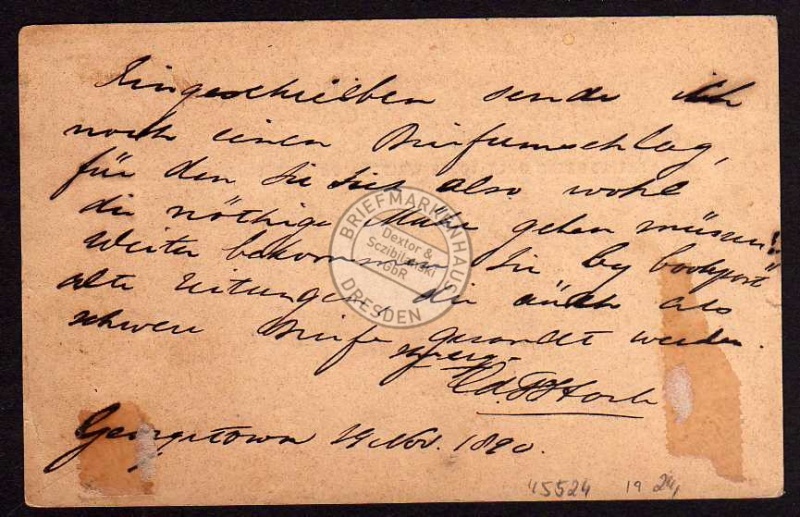 Eingeschrieben sende ich
noch einen Briefumschlag,
für den Sie Sich also wohl
die nöthige Mühe geben müssen!!
Weiter bekommen Sie by bookpost
alte Zeitungen die auch als
schwere Briefe gesandt werden.
Georgetown 19 Nov. 1890.
15524 19 24
BRIEFMARKENHAUS
Dextor &
Sczibilanski
GbR
DRESDEN